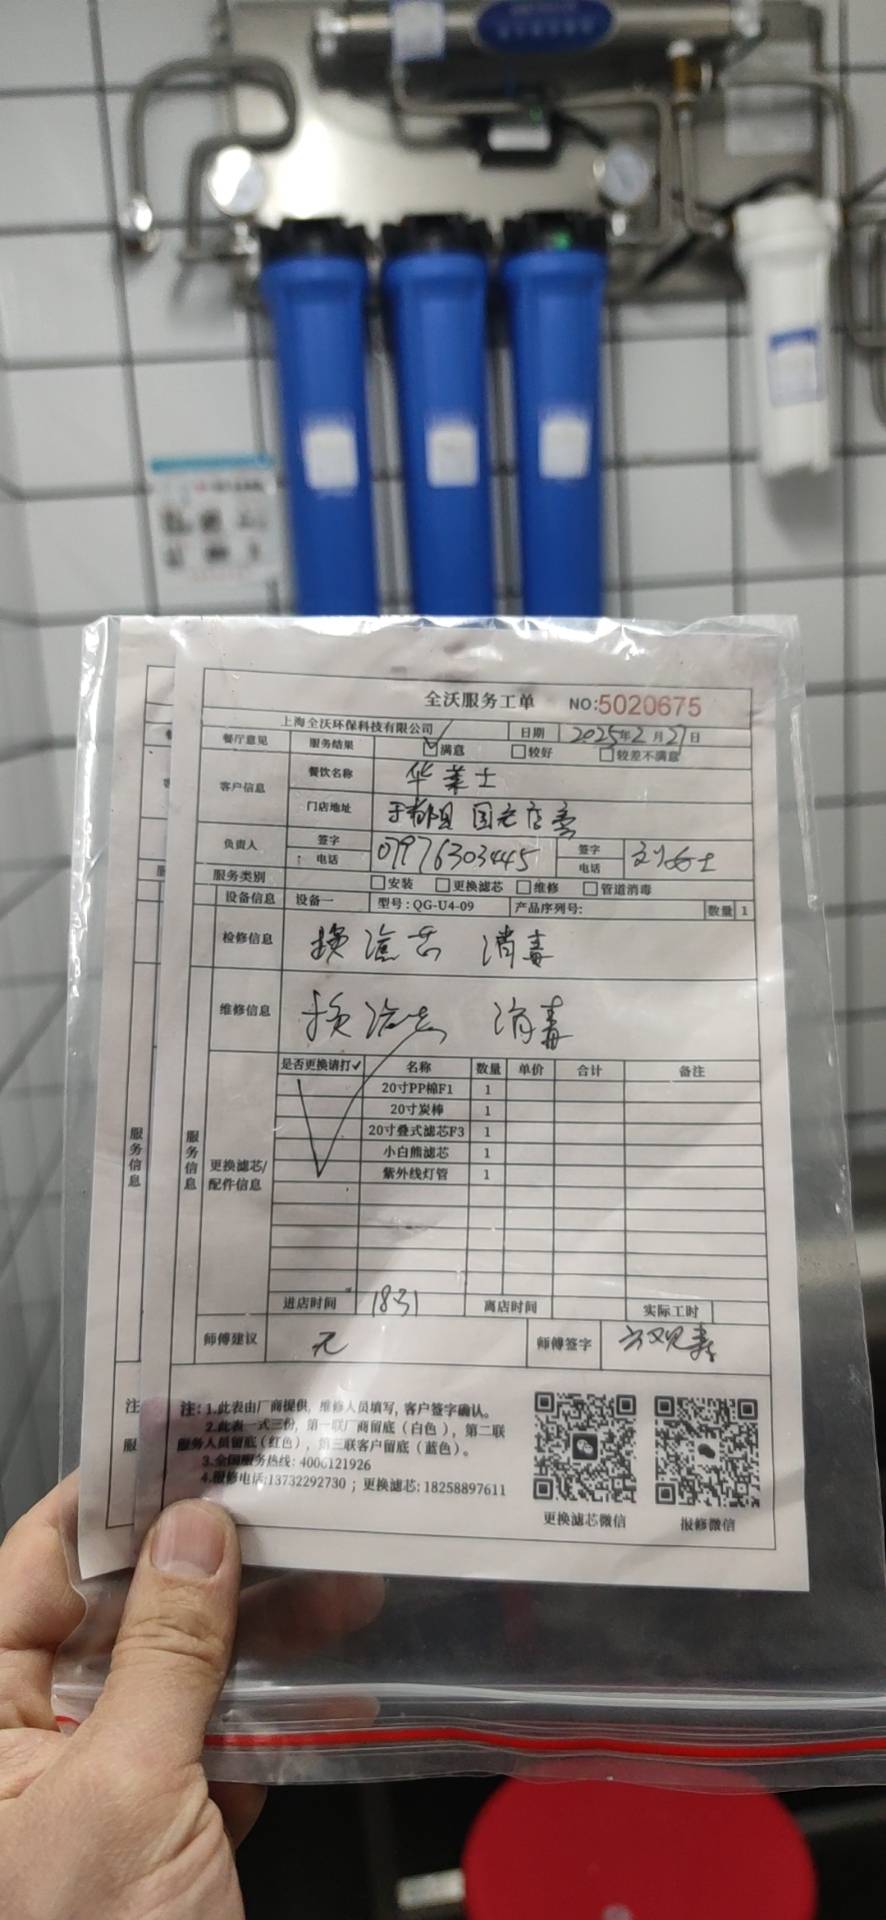 全沃服务工单 NO:5020675
上海全沃环保科技有限公司 日期 2025年2月27日
餐厅意见 服务结果 满意 较好 较差不满意
客户信息 餐饮名称 华莱士
门店地址 于都县国老店
负责人 签字 电话 07976303445 签字 电话 刘女士
服务类别 安装 更换滤芯 维修 管道消毒
设备信息 设备一 型号:QG-U4-09 产品序列号: 数量 1
检修信息 换滤芯 消毒
维修信息 换滤芯 消毒
服务信息
服务信息
更换滤芯/配件信息
是否更换请打✓ 名称 数量 单价 合计 备注
20寸PP棉F1 1
20寸炭棒 1
20寸叠式滤芯F3 1
小白熊滤芯 1
紫外线灯管 1
进店时间 18:31 离店时间 实际工时
师傅建议 无 师傅签字
注:1.此表由厂商提供, 维修人员填写, 客户签字确认。
2.此表一式三份, 第一联厂商留底(白色), 第二联
服务人员留底(红色), 第三联客户留底(蓝色)。
3.全国服务热线: 4006121926
4.报修电话:13732292730 ; 更换滤芯: 18258897611
更换滤芯微信 报修微信
注
服